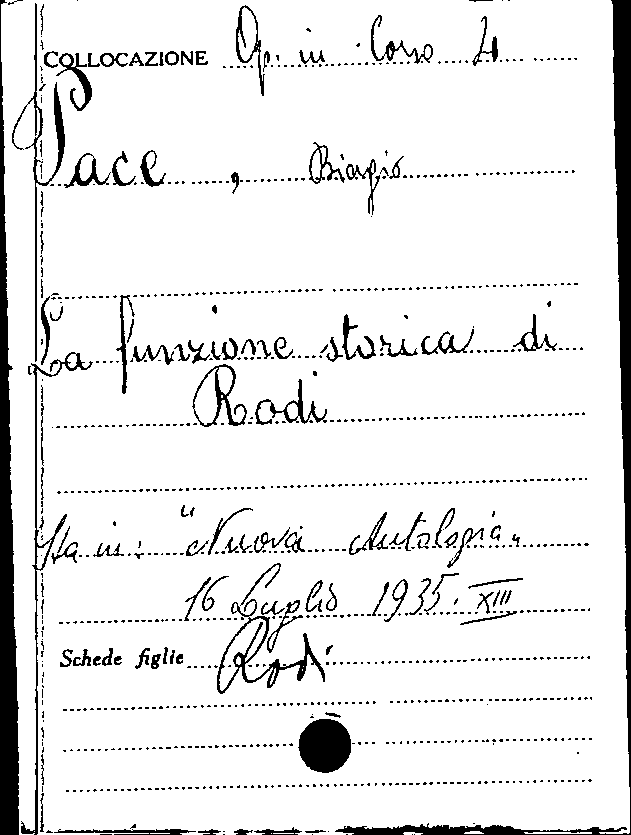 COLLOCAZIONE Op. in Corso 20
Pace, Biagio
La funzione storica di
Rodi
Sta in: "Nuova Antologia„
16 Luglio 1935. XIII
Schede figlie Rodi